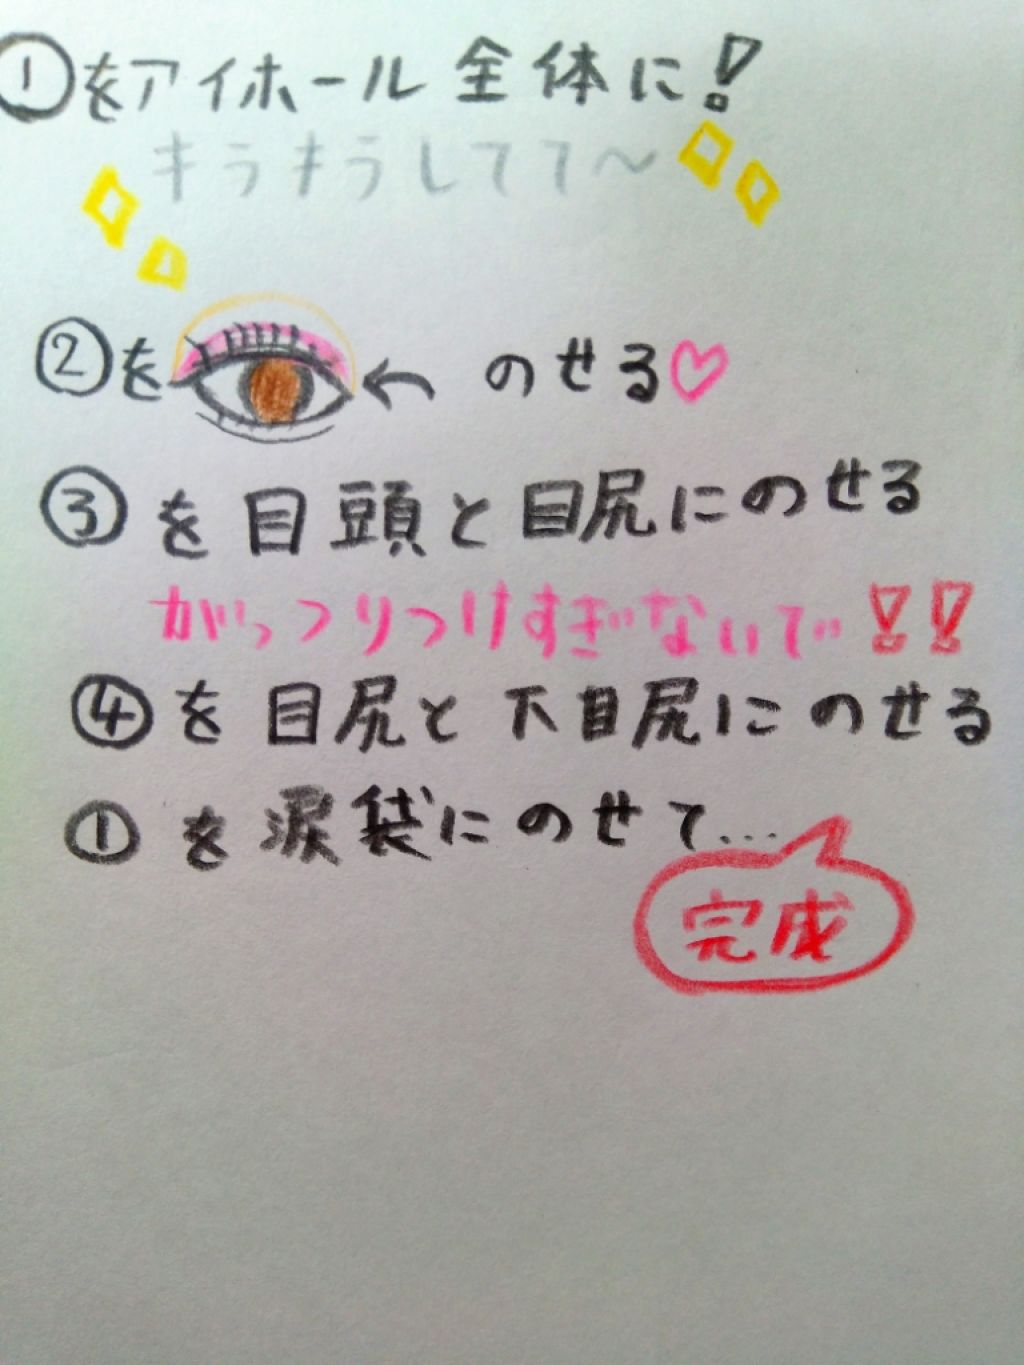 ①をアイホール全体に!
キラキラしてて〜
②を ← のせる♡
③を目頭と目尻にのせる
がっつりつけすぎないで!!
④を目尻と下目尻にのせる
①を涙袋にのせて...
完成